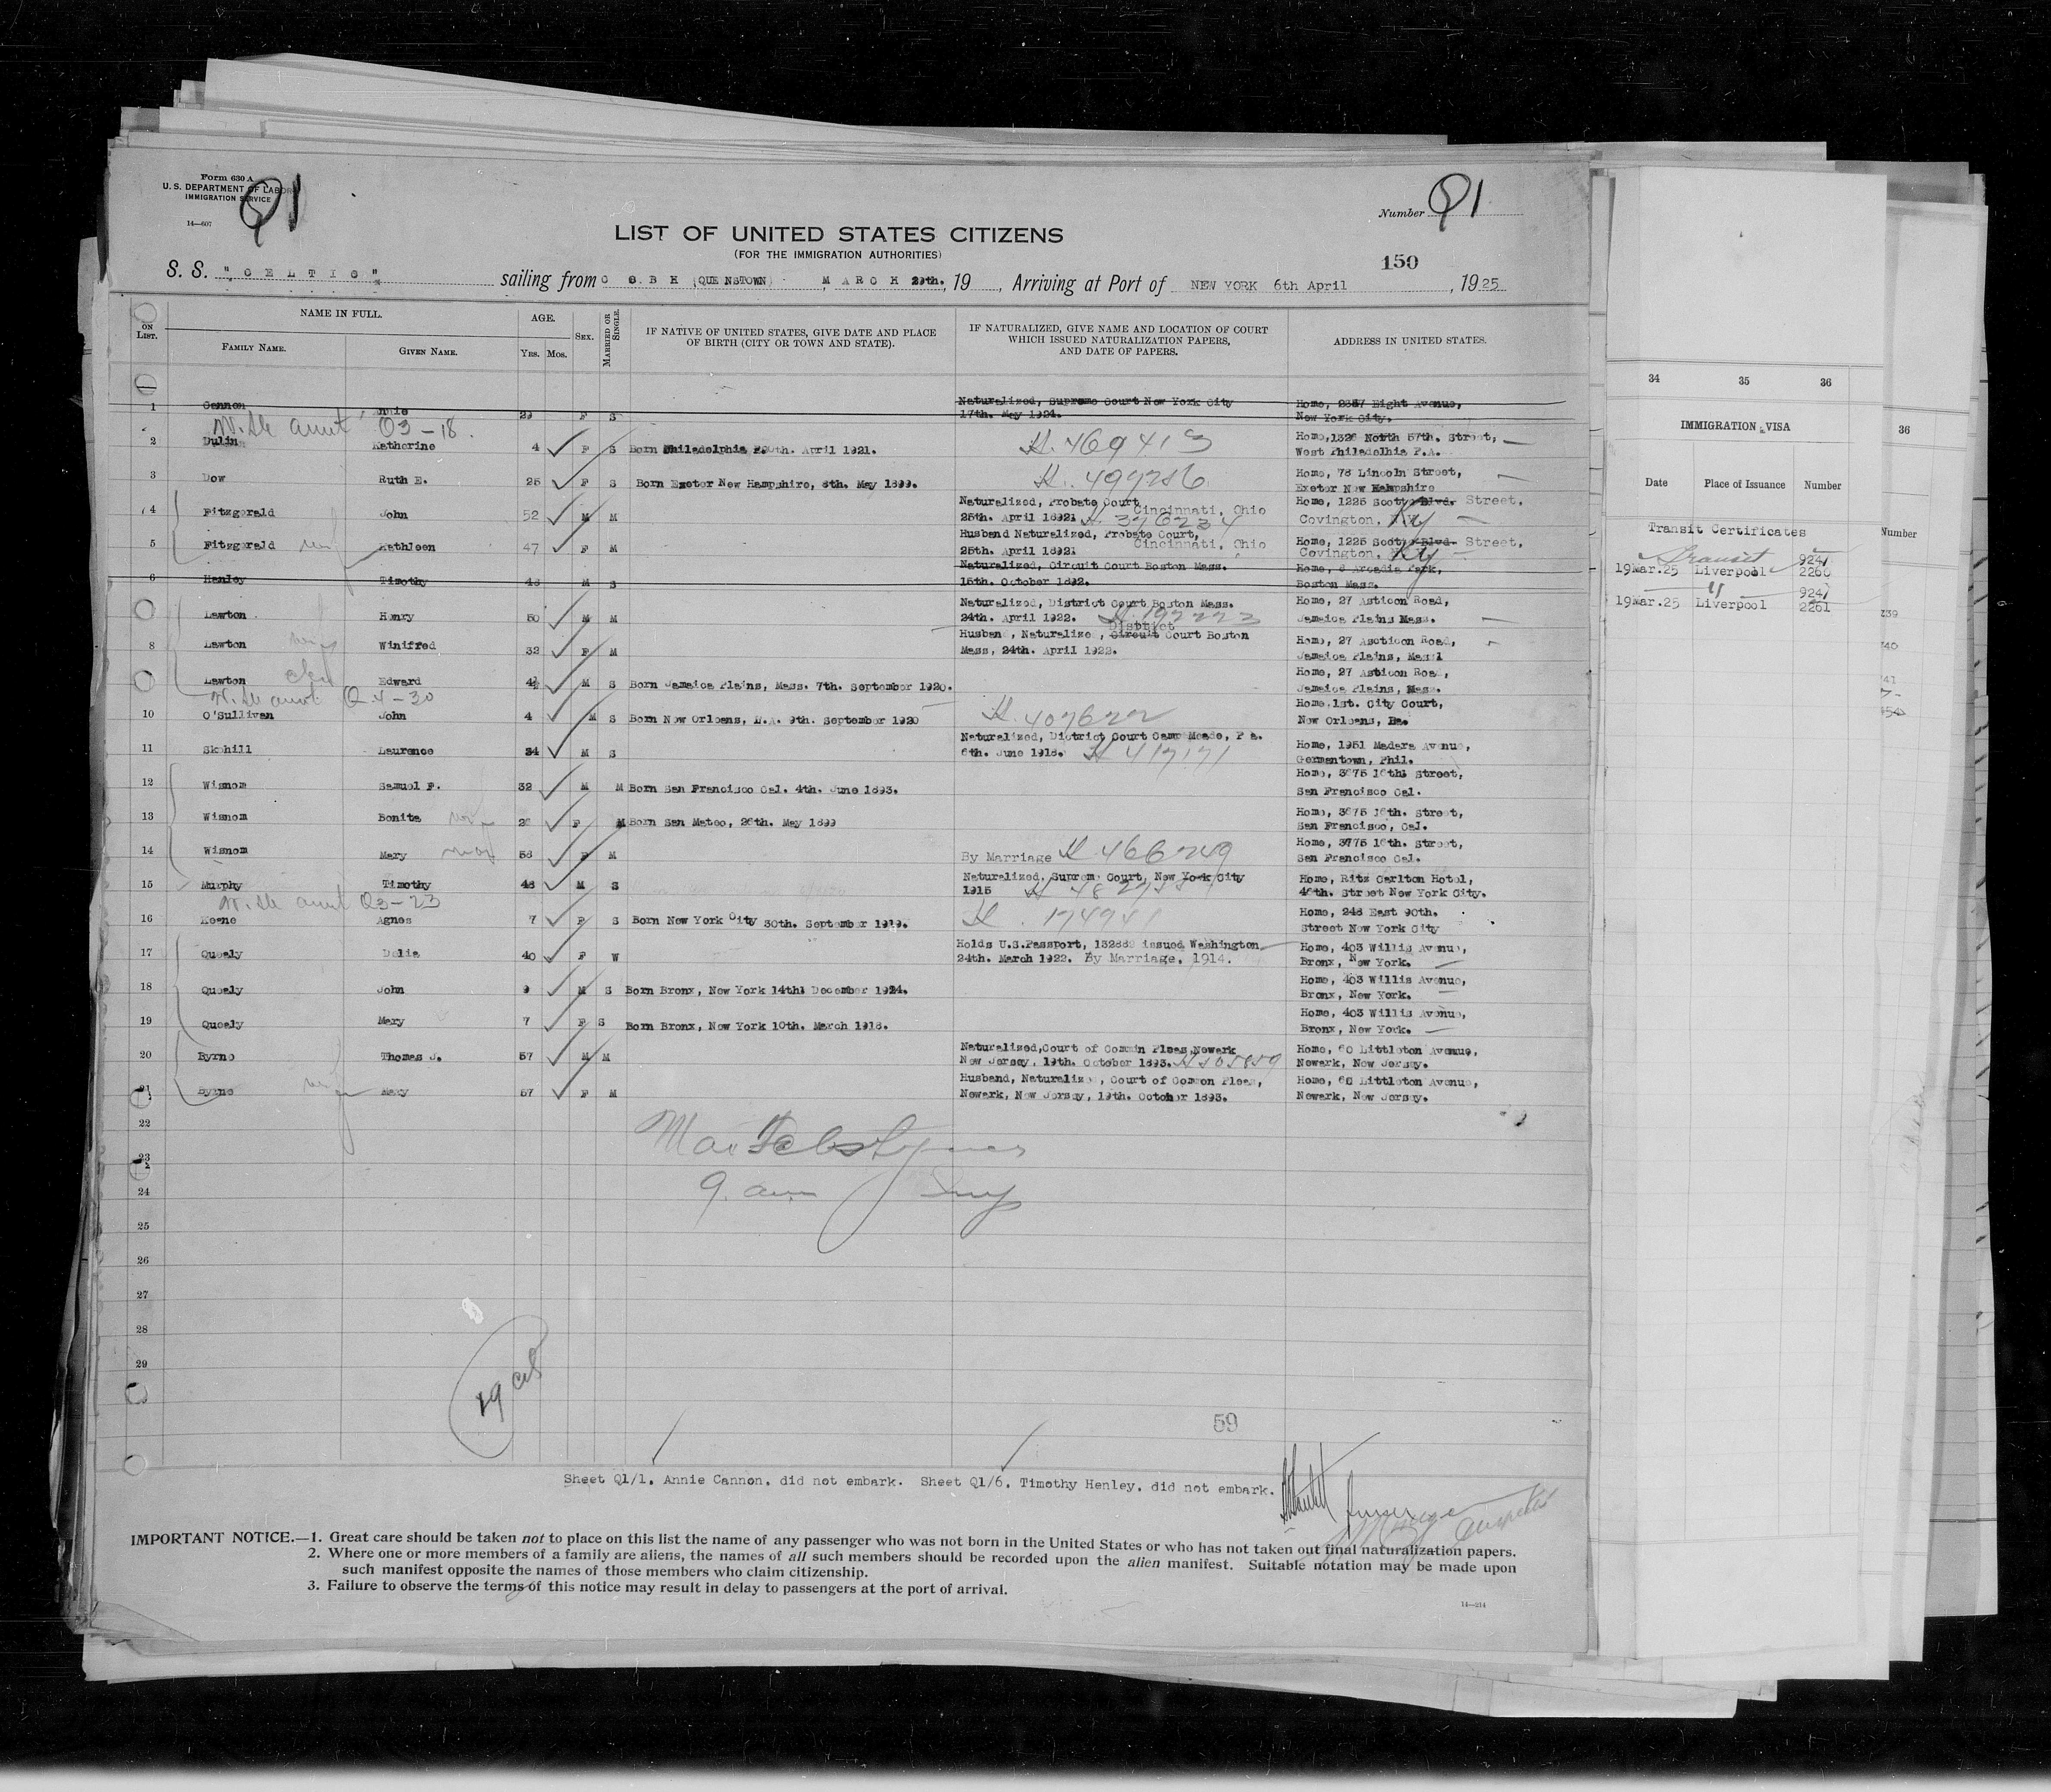 Form 630 A
U. S. DEPARTMENT OF LABOR
IMMIGRATION SERVICE
14—607
Q1
Number Q1
LIST OF UNITED STATES CITIZENS
(FOR THE IMMIGRATION AUTHORITIES)
150
S. S. "CELTIC" sailing from COBH (QUENSTOWN), MARCH 29th., 19 , Arriving at Port of NEW YORK 6th April, 1925
ON LIST. NAME IN FULL. FAMILY NAME. GIVEN NAME. AGE. YRS. MOS. SEX. MARRIED OR SINGLE. IF NATIVE OF UNITED STATES, GIVE DATE AND PLACE OF BIRTH (CITY OR TOWN AND STATE). IF NATURALIZED, GIVE NAME AND LOCATION OF COURT WHICH ISSUED NATURALIZATION PAPERS, AND DATE OF PAPERS. ADDRESS IN UNITED STATES.
1 Cannon nnie 29 F S Naturalized, Supreme Court New York City 17th. May 1924. Home, 2357 Eight Avenue, New York City.
W. Sle aunt Q3-18.
2 Dulin Katherine 4 F S Born Philadelphia April 1921. 469413 Home, 1326 North 57th. Street, West Philadelhia P.A.
3 Dow Ruth E. 25 F S Born Exeter New Hampshire, 8th. May 1899. 497286 Home, 78 Lincoln Street, Exeter New Hampshire
4 Fitzgerald John 52 M M Naturalized, Probate Court Cincinnati, Ohio 25th. April 18921 376234 Home, 1225 Scott Blvd. Street. Covington, Ky
5 Fitzgerald Kathleen 47 F M Husband Naturalized, Probate Court, Cincinnati, Ohio 25th. April 18921 Home, 1225 Scott Blvd. Street, Covington, Ky
6 Henley Timothy 43 M S Naturalized, Circuit Court Boston Mass. 15th. October 1892. Home, 6 Arcadia Park, Boston Mass.
Lawton Henry 50 M M Naturalized, District Court Boston Mass. 24th. April 1922. Home, 27 Asticon Road, Jamaica Plains Mass.
8 Lawton Winifred 32 F M Husban , Naturalize , Circuit District Court Boston Mass, 24th. April 1922. Home, 27 Asticon Road, Jamaica Plains,
Lawton Edward 4½ M S Born Jamaica Plains, Mass. 7th. September 1920. Home, 27 Asticon Road, Jamaica Plains, Mass.
W. Sle aunt Q4-30
10 O'Sullivan John 4 M S Born New Orleans, L.A. 9th. September 1920 407622 Home.1st. City Court, New Orleans,
11 Skehill Laurence 34 M S Naturalized, District Court Camp Meade, P a. 6th. June 1918. 417171 Home, 1951 Madara Avenue, Germantown, Phil.
12 Wisnom Samuel F. 32 M M Born San Francisco Cal. 4th. June 1893. Home, 3675 16th. Street, San Francisco Cal.
13 Wisnom Bonita F M Born San Mateo, 26th. May 1899 Home, 3675 16th. Street, San Francisco, Cal.
14 Wisnom Mary 58 F M By Marriage 466749 Home, 3775 16th. Street, San Francisco Cal.
15 Murphy Timothy 48 M S Naturalized, Supreme Court, New York City 1915 Home, Ritz Carlton Hotel, 46th. Street New York City.
W. Sle aunt Q3-23
16 Keene Agnes 7 F S Born New York City 30th. September 1919. 174941 Home, 248 East 90th. Street New York City
17 Quealy Delia 40 F W Holds U.S.Passport, 132889 issued Washington 24th. March 1922. By Marriage, 1914. Home, 403 Willis Avenue, Bronx, New York.
18 Quealy John 9 M S Born Bronx, New York 14th. December 1924. Home, 403 Willis Avenue, Bronx, New York.
19 Quealy Mary 7 F S Born Bronx, New York 10th. March 1918. Home, 403 Willis Avenue, Bronx, New York.
20 Byrne Thomas J. 57 M M Naturalized,Court of Commin Pleas,Newark New Jersey, 19th. October 1893. Home, 60 Littleton Avenue, Newark, New Jersey.
21 Byrne Mary 57 F M Husband, Naturalize , Court of Common Pleas, Newark, New Jersey, 19th. October 1893. Home, 60 Littleton Avenue, Newark, New Jersey.
22
23
9. am
24
25
26
27
28
29
59
Sheet Q1/1, Annie Cannon, did not embark. Sheet Q1/6, Timothy Henley, did not embark.
IMPORTANT NOTICE.—1. Great care should be taken not to place on this list the name of any passenger who was not born in the United States or who has not taken out final naturalization papers.
2. Where one or more members of a family are aliens, the names of all such members should be recorded upon the alien manifest. Suitable notation may be made upon
such manifest opposite the names of those members who claim citizenship.
3. Failure to observe the terms of this notice may result in delay to passengers at the port of arrival.
14—214
34 35 36
IMMIGRATION VISA
36
Date Place of Issuance Number
Number
Transit Certificates
Transit 9241
19Mar.25 Liverpool 2260
" 9241
19Mar.25 Liverpool 2261